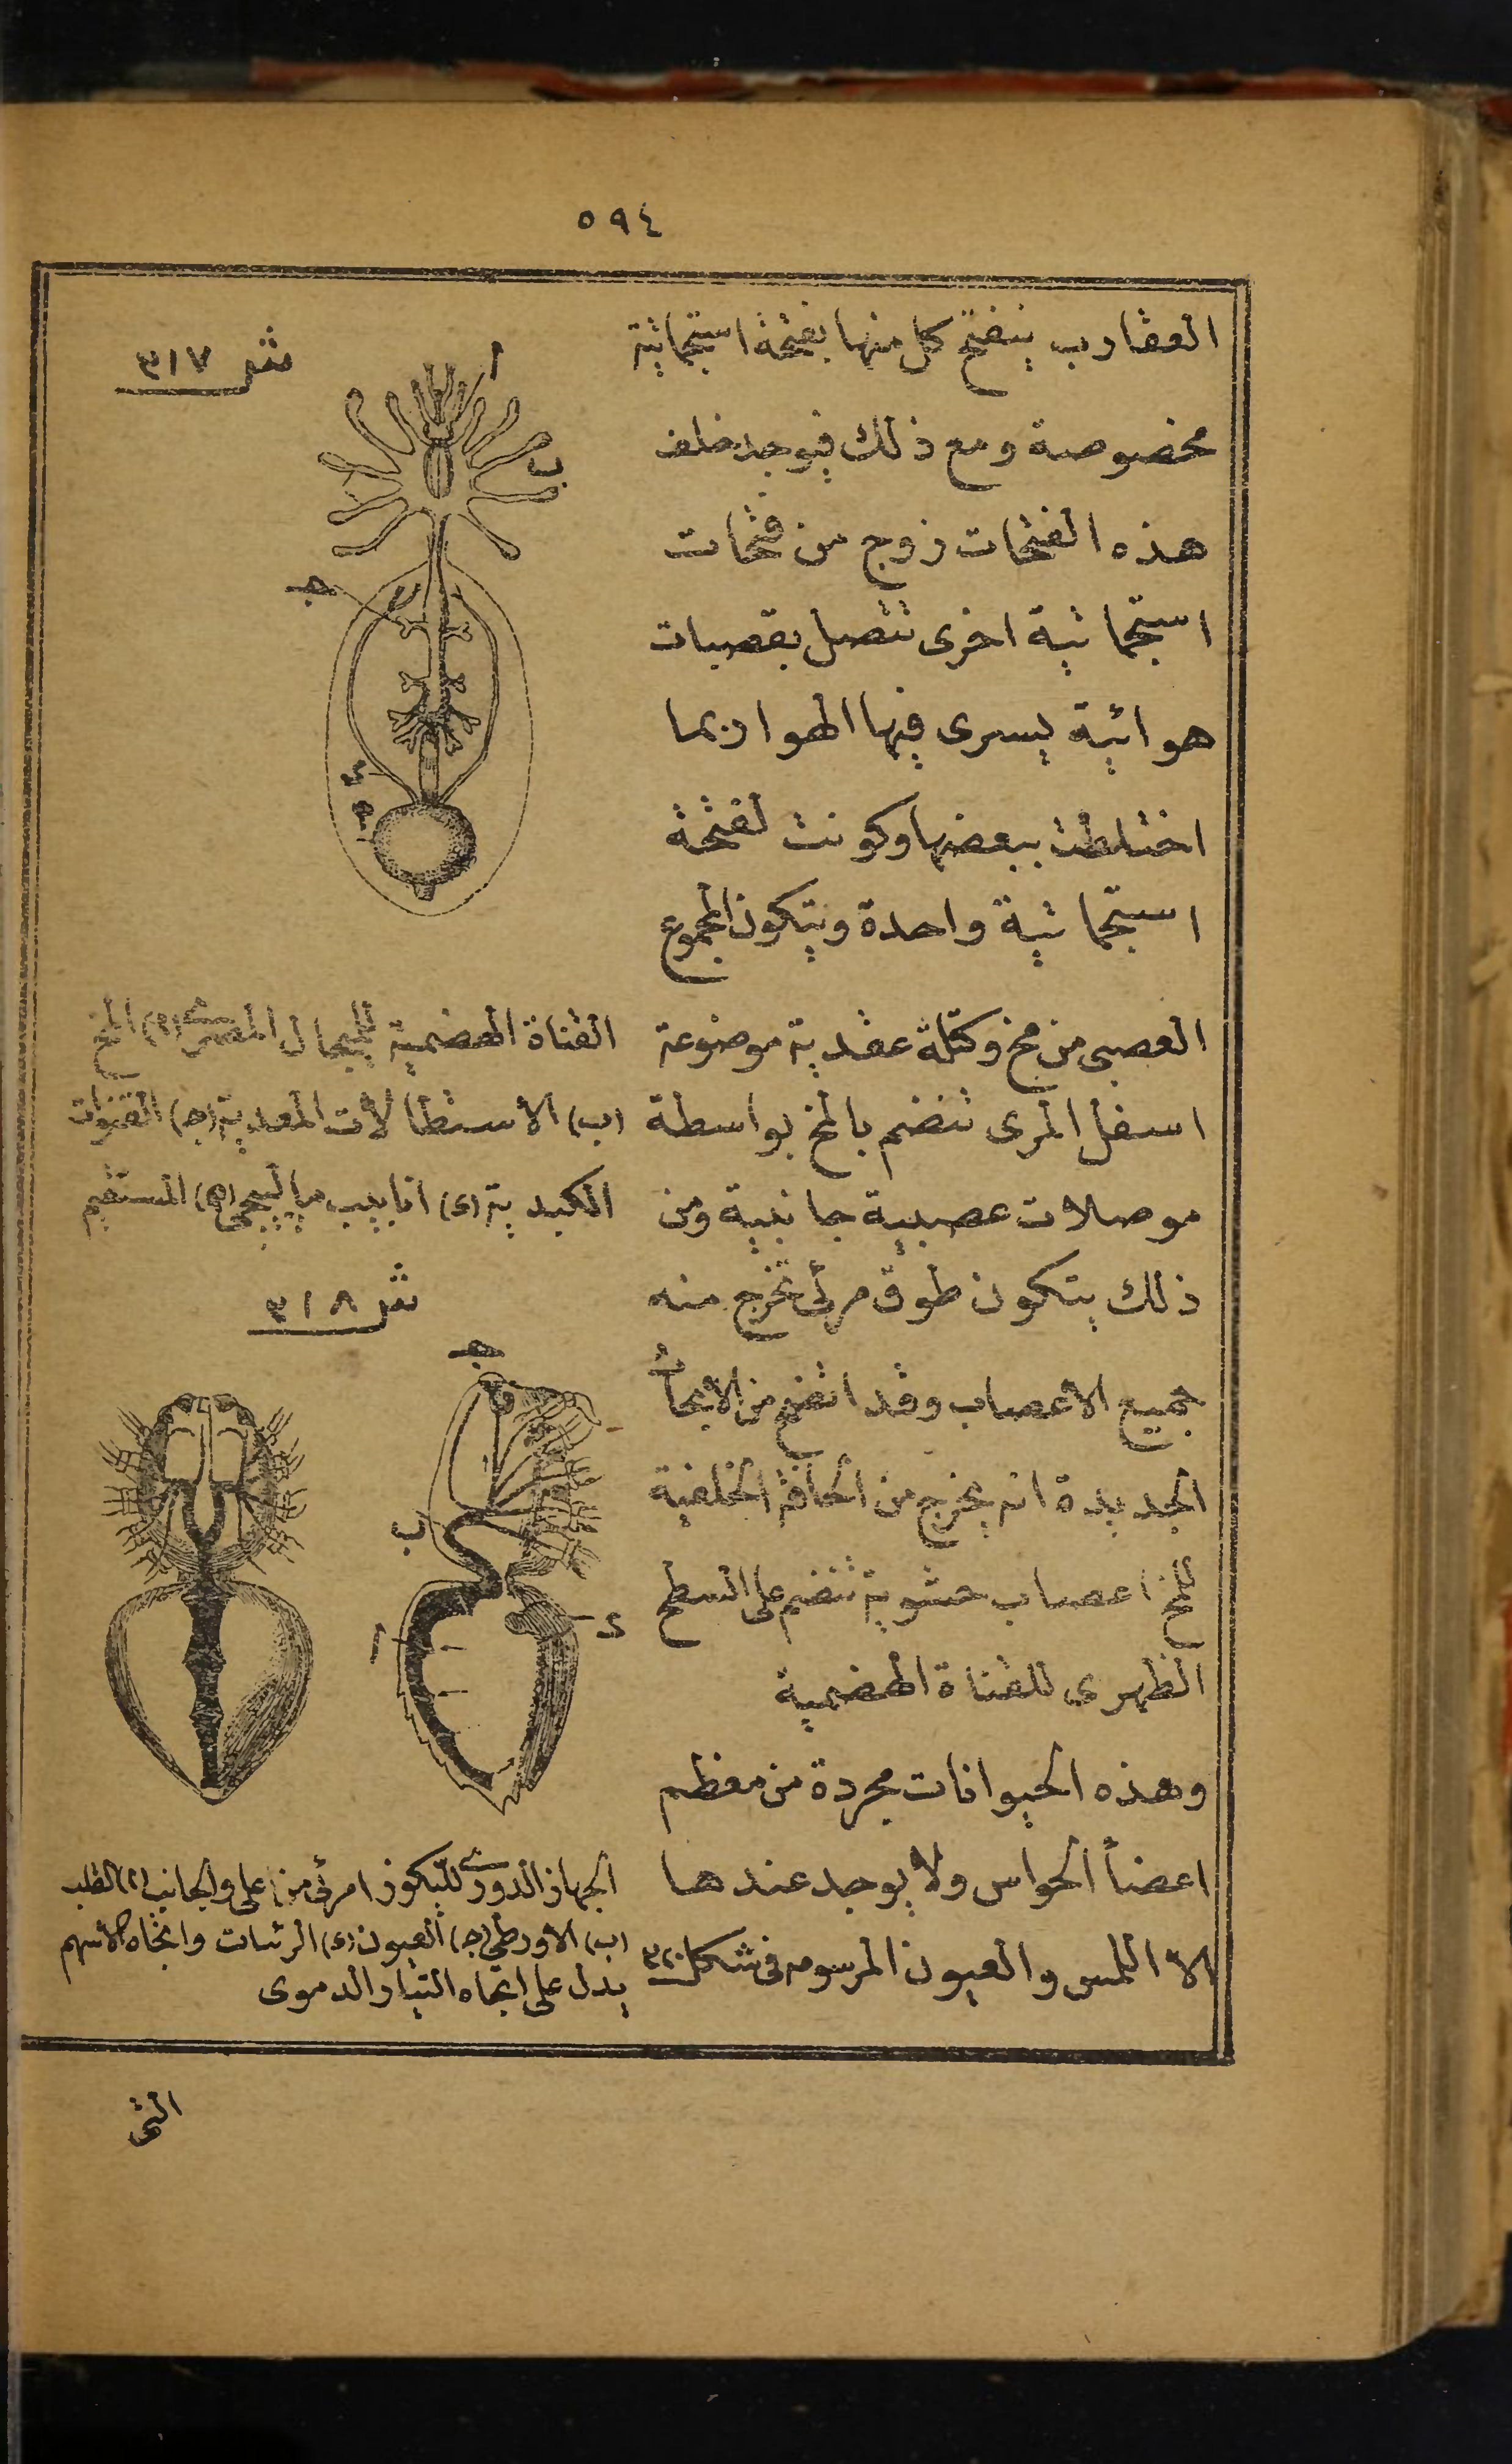 ٥٩٤
العقارب ينفتح كل منها بفتحة استجماتية
مخصوصة ومع ذلك فيوجد خلف
هذه الفتحات زوج من فتحات
استجماتية اخرى تتصل بقصبات
هوائية يسرى فيها الهوا ربما
اختلطت ببعضها وكونت لفتحة
استجماتية واحدة ويتكون المجموع
العصبى من مخ وكتلة عقدية موضوعة
اسفل المرى تنضم بالمخ بواسطة
موصلات عصبية جانبية ومن
ذلك يتكون طوق مرئى تخرج منه
جميع الاعصاب وقد اتضح من الابحاث
الجديدة انه يخرج من الحافة الخلفية
للمخ اعصاب حشوية تنضم على السطح
الظهرى للقناة الهضمية
وهذه الحيوانات مجردة من معظم
اعضاء الحواس ولا يوجد عندها
الا اللمس والعيون المرسومه فى شكل ٣٢٠
شر ٣١٧
ا
ب
ج
د
ه
القناة الهضمية للميجال (ا) المخ
(ب) الاستطالات المعدية (ج) القنوات
الكبدية (د) انابيب ماليبجى (ه) المستقيم
شر ٣١٨
ج
ب
ا
د
الجهاز الدورى لليكوز امرئى من اعلى والجانب (ا) القلب
(ب) الاورطى (ج) العيون (د) الرئات واتجاه الاسهم
يدل على اتجاه التيار الدموى
التى